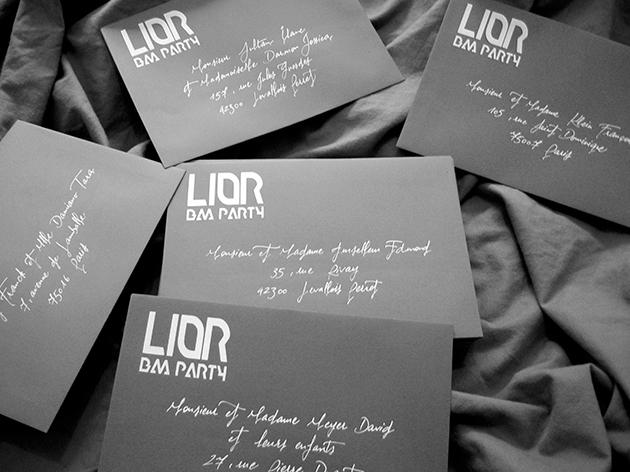 LIOR
BM PARTY
Monsieur
et Mademoiselle Jessica
157, rue Jules Guesdes
42300 Levallois Perret
LIOR
BM PARTY
Monsieur et Madame Klein François
105, rue Saint Dominique
75007 Paris
Franck et Mlle Damiano Tara
7, avenue de
75016 Paris
LIOR
BM PARTY
Monsieur et Madame Edmond
35, rue Rivay
42300 Levallois Perret
LIOR
BM PARTY
Monsieur et Madame Meyer David
et leurs enfants
27, rue Pierre